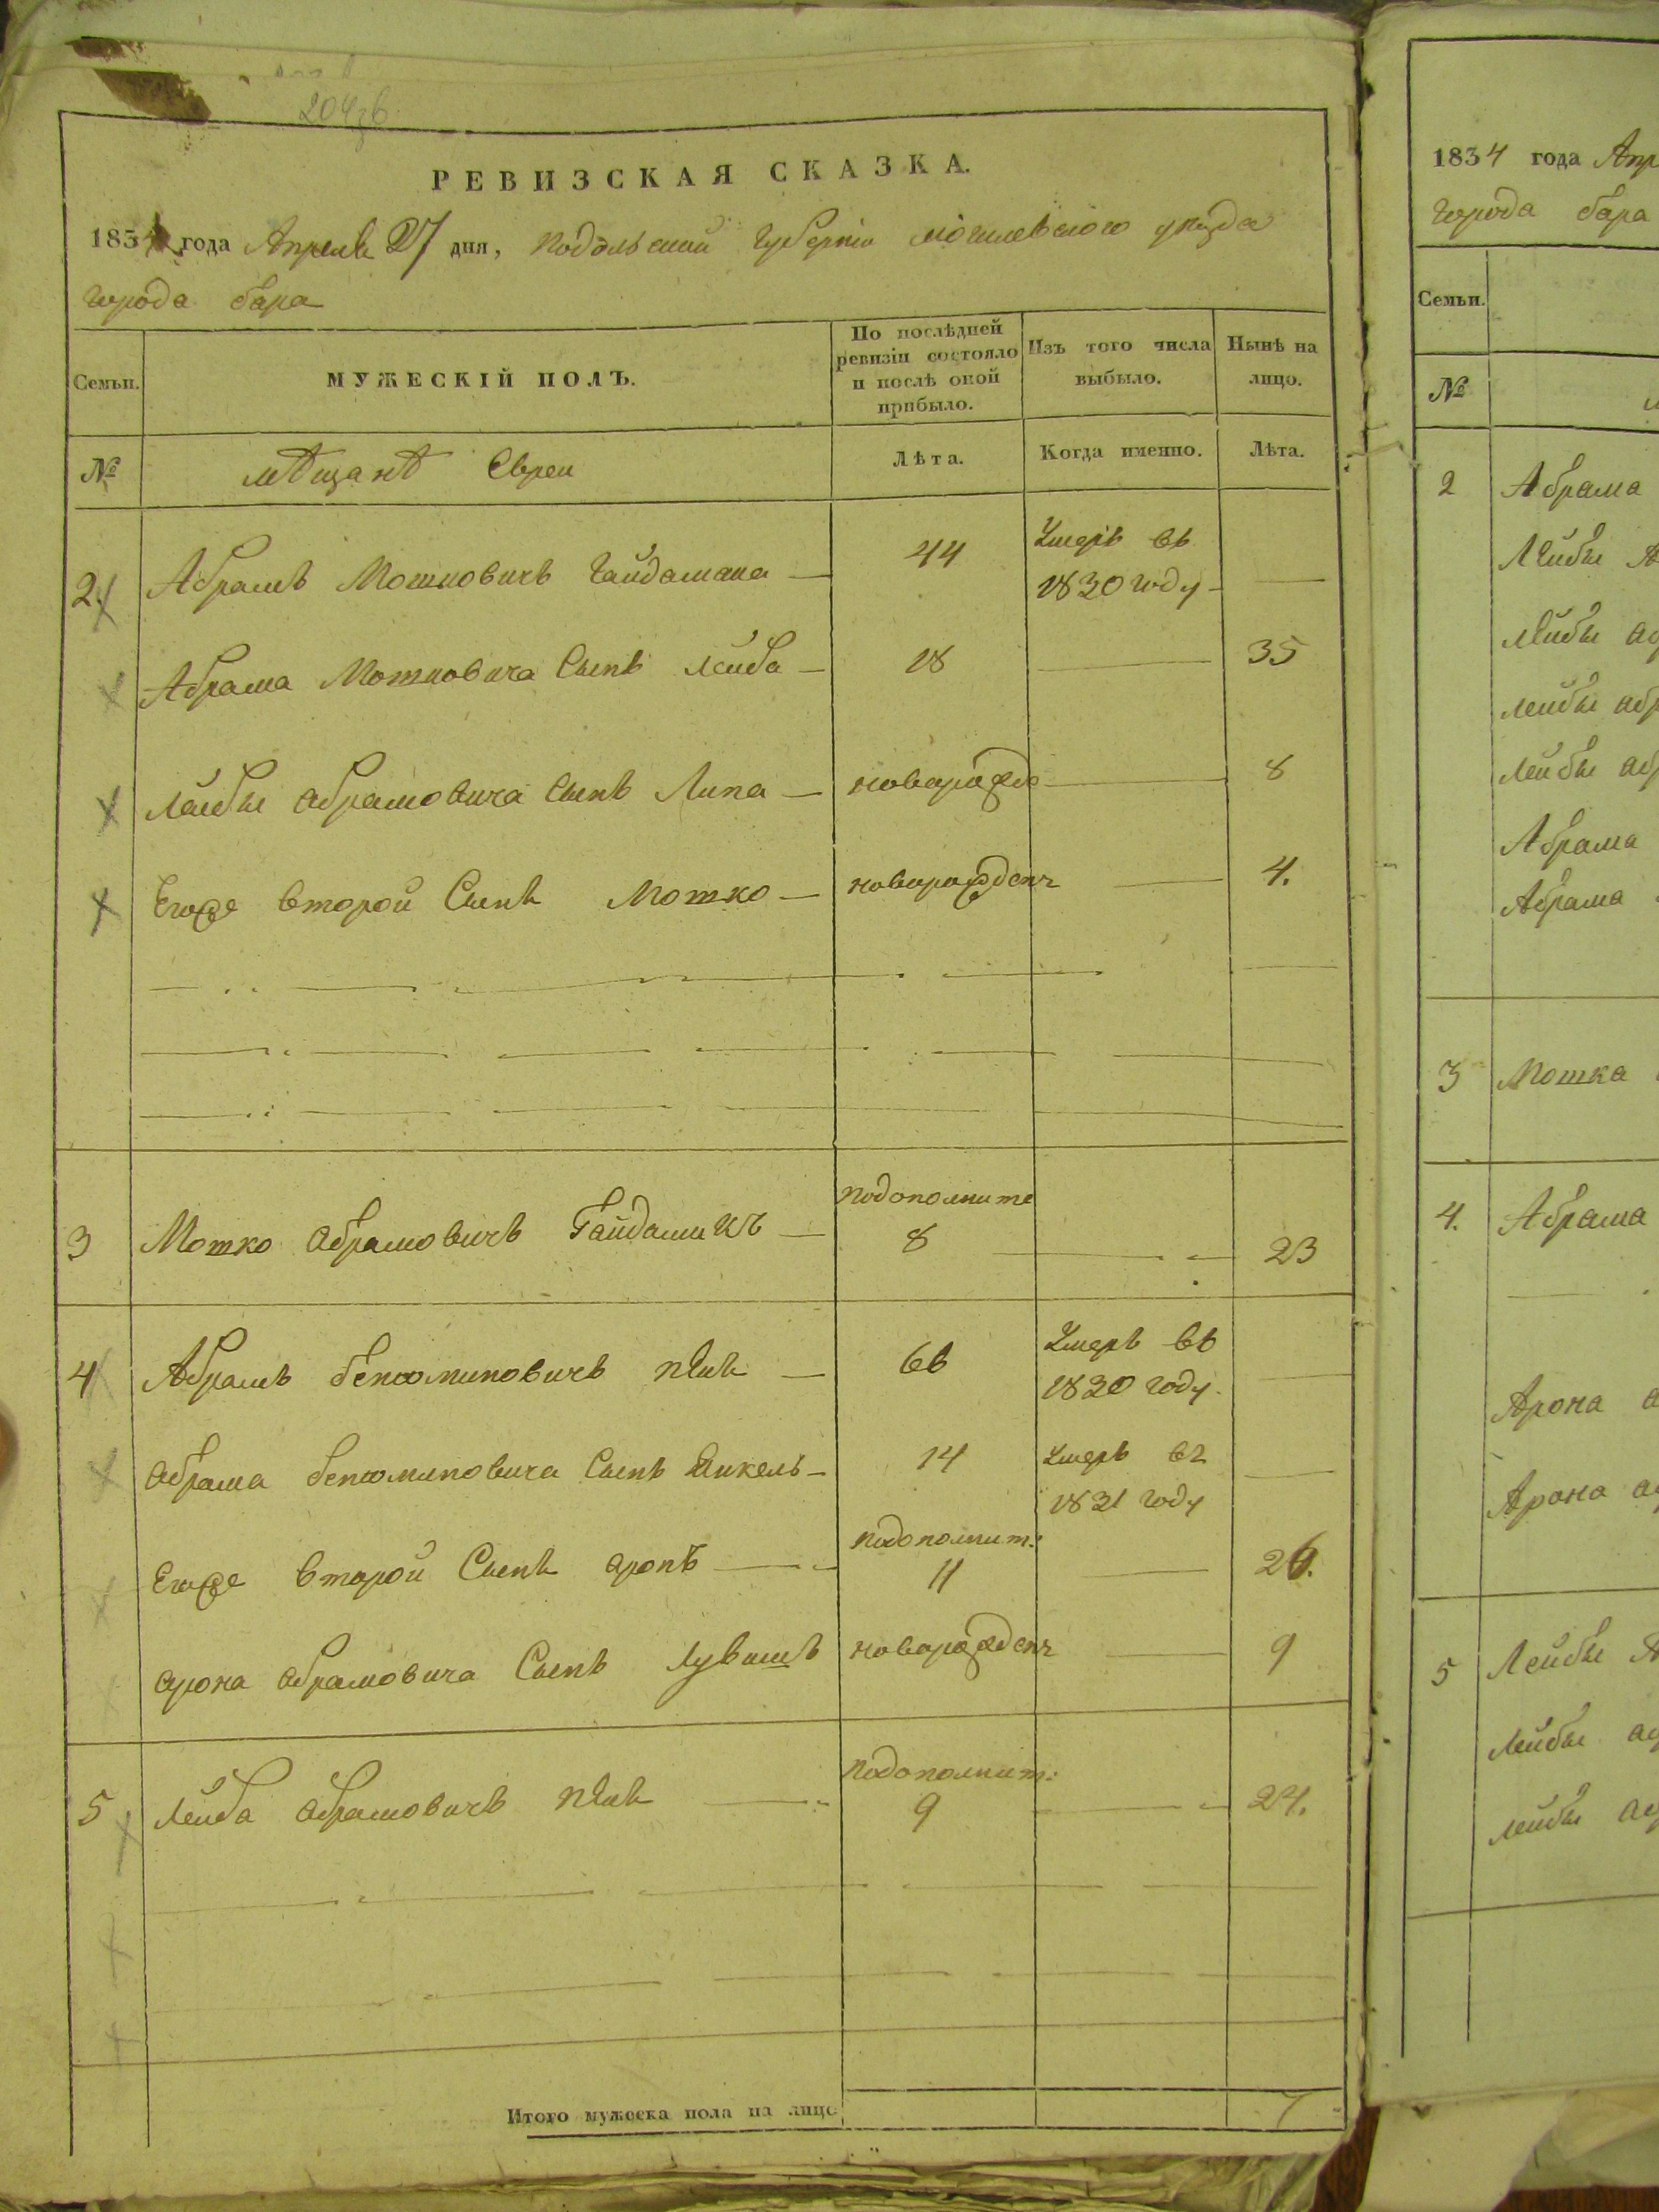 204зв
РЕВИЗСКАЯ СКАЗКА.
1834 года Апреля 27 дня, Подольской Губерніи могилевского уезда
города бара
Семьи.
МУЖЕСКІЙ ПОЛЪ.
По послѣдней
ревизіи состояло
и послѣ оной
прибыло.
Изъ того числа
выбыло.
Нынѣ на
лицо.
№
мѣщанѣ Евреи
Лѣта.
Когда именно.
Лѣта.
2.
Абрамъ Мошковичъ Гайдамака —
44
Умеръ въ
1830 году —
Абрама Мошковича Сынъ Лейба —
18
35
Лейбы абрамовича Сынъ Липа —
новорожде
8
Егоже второй Сынъ Мотко —
новорожденъ
4.
3
Мотко абрамовичъ Гайдамакъ —
подополните
8
23
4
Абрамъ бенюминовичъ —
66
Умеръ въ
1830 году.
абрама бенюминовича Сынъ Янкель —
14
Умеръ въ
1831 году
Егоже второй Сынъ аронъ —
подополнит:
11
26.
арона абрамовича Сынъ
новорожденъ
9
5
Лейба абрамовичъ
подополнит:
9
24.
Итого мужеска пола на лицо
7
1834 года Апр
города бара
Семьи.
№
2
Абрама
Лейбы А
Лейбы аб
лейбы абр
Лейбы абр
Абрама
Абрама
3
Мошка
4.
Абрама
Арона а
Арона аб
5
Лейбы А
Лейбы аб
лейбы аб